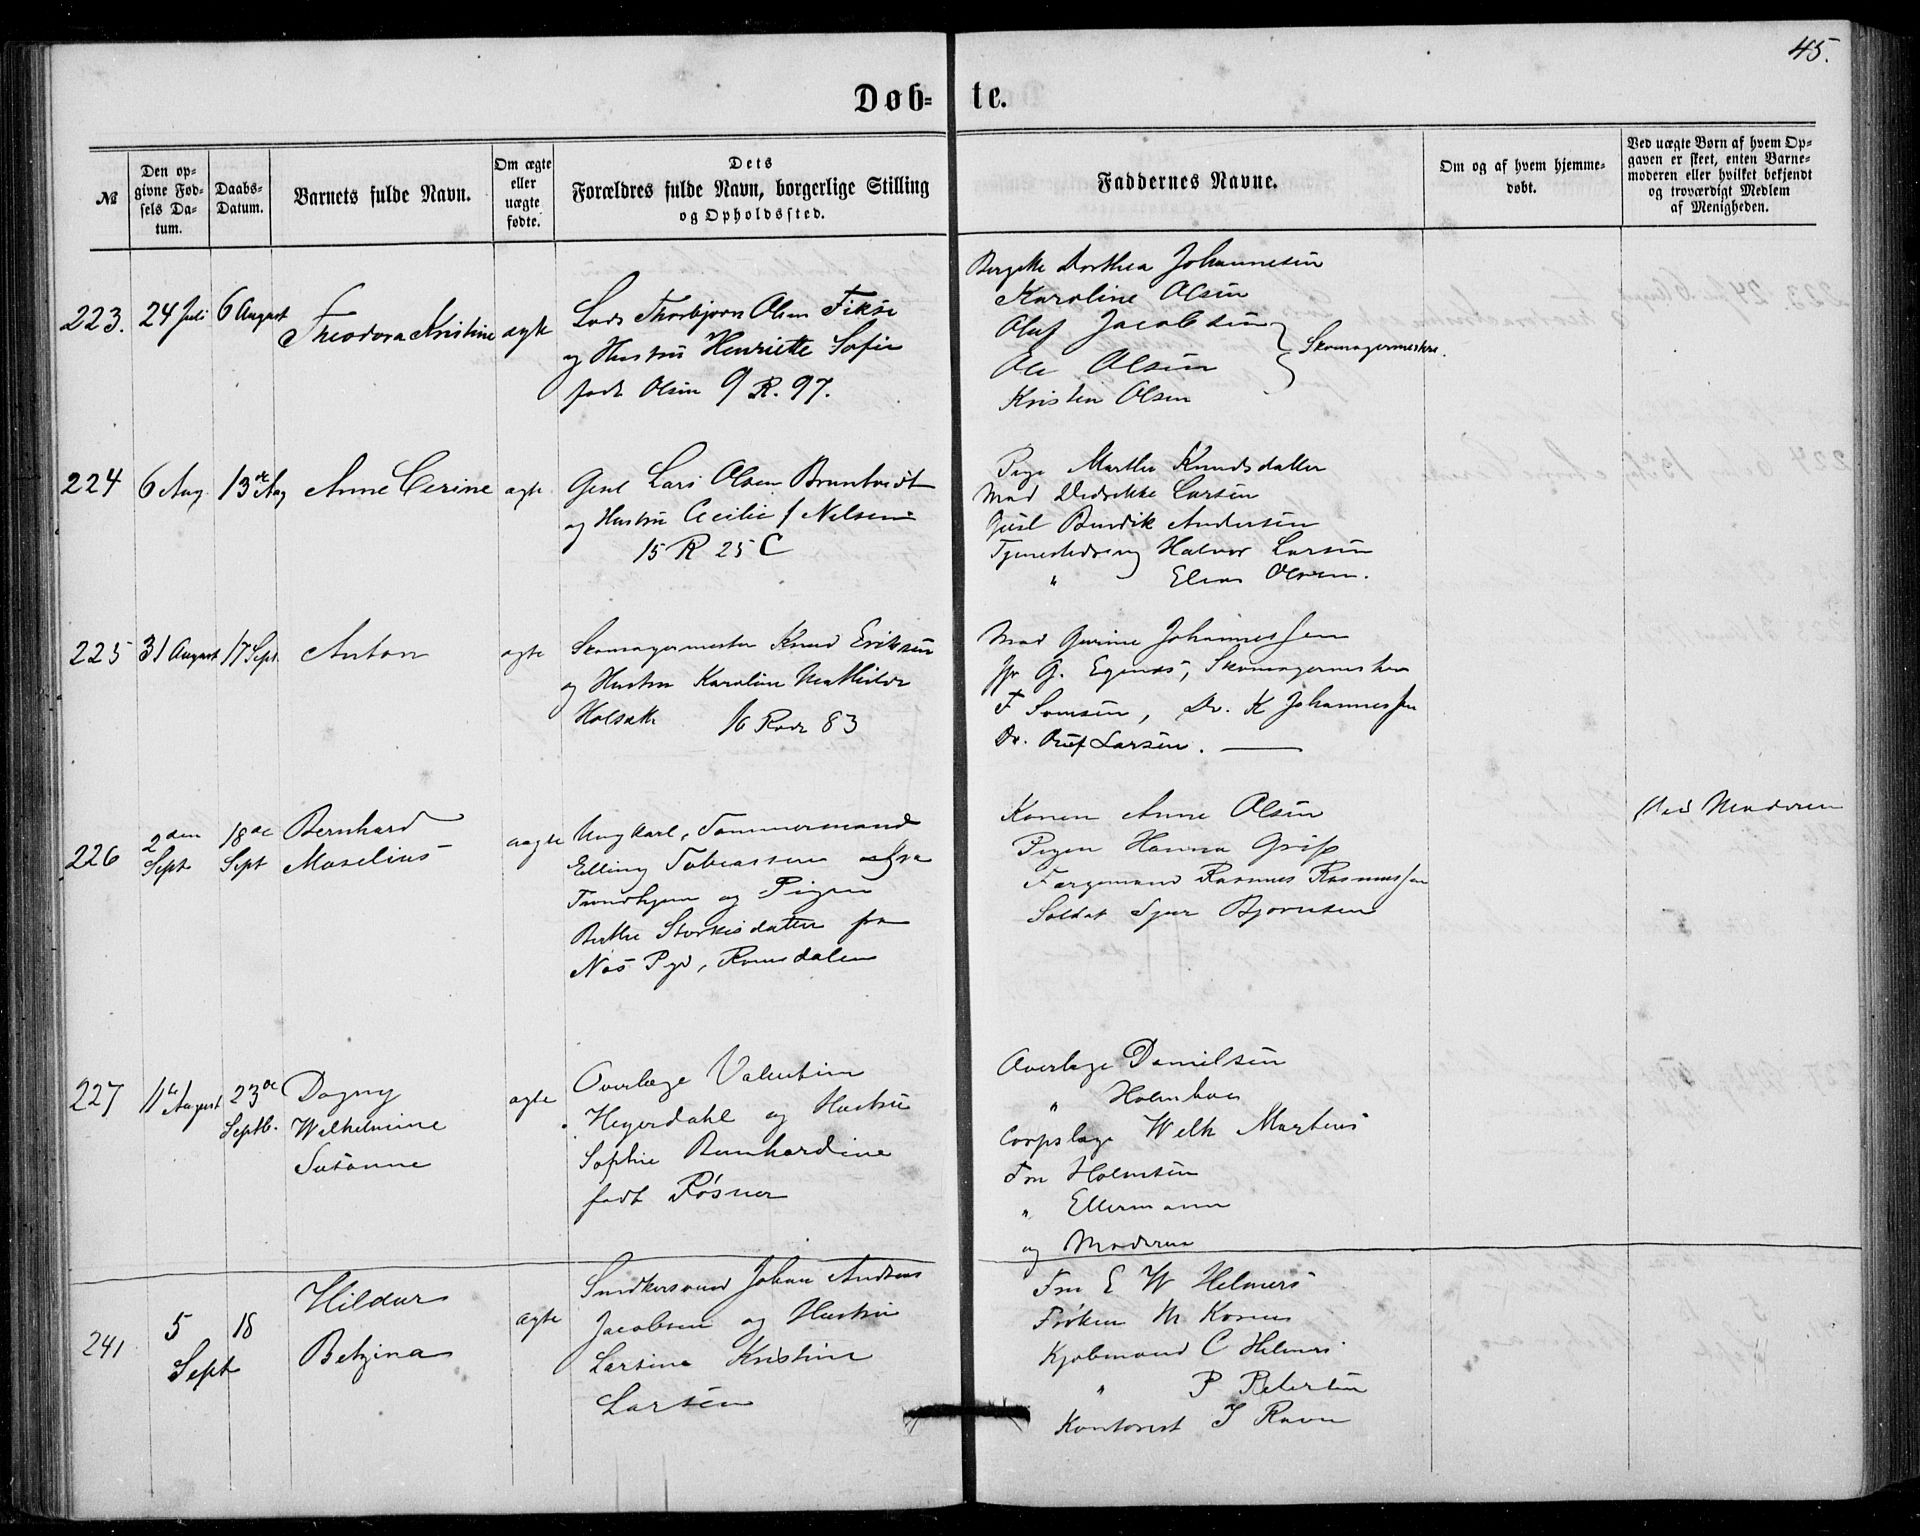 45.
Døb-te.
№
Den opgivne Fødsels Datum.
Daabs-Datum.
Barnets fulde Navn.
Om ægte eller uægte fødte.
Dets
Forældres fulde Navn, borgerlige Stilling
og Opholdssted.
Faddernes Navne.
Om og af hvem hjemmedøbt.
Ved uægte Børn af hvem Opgaven er skeet, enten Barnemoderen eller hvilket bekjendt og troværdigt Medlem af Menigheden.
223. 24 Juli 6 August Theodora Kristine ægte
Lods Thorbjørn Olsen
og Hustru Henriette Sofie
født Olsen 9 R. 97.
Dorthea Johannesen
Karoline Olsen
Oluf Jacobsen
Ole Olsen
Skomagermestre.
Kristen Olsen
224 6 Aug. 13de Aug Anne Cerine ægte
Lars Olsen
og Hustru Cecilie f Nilsen
15 R 25 C
Pige Marthe Knudsdatter
Mad Didrikke Larsen
Bendik Andersen
Halvor Larsen
" Elias Olsen.
225 31 August 17 Sept. Anton ægte
Skomagermester Knud Eriksen
og Hustru Karoline Mathilde
16 Rode 83
Mad Gurine Johannessen
G. Egenæs, Skomagermester
Dr. K Johannessen
Dr. Larsen.
226 2den Sept 18de Sept
Bernhard
Moselius
uægte
Ungkarl, Tømmermand
Elling Tobiassen
Trondhjem og Pigen
Berthe fra
Næs Pgd, Romsdalen
Konen Anne Olsen
Pigen Hanna Grip
Færgemand Rasmus Rasmussen
Soldat Bjørnsen
Ved Moderen
227 11te August 23de Septb.
Dagny
Wilhelmine
Susanne
ægte
Overlæge Valentin
Heyerdahl og Hustru
Sophie Bernhardine
født Rösner
Overlæge Danielsen
" Holmboe
Corpslæge Welh Martens
Fru Holmsen
" Ellermann
og Moderen
241 5 Sept 18
Hildur
Betzina
ægte
Snedkersvend Johan Andreas
Jacobsen og Hustru
Larsine Kristine
Larsen
Fru E W Helmers
Frøken M Koren
Kjøbmand C Helmers
" P Petersen
Kontorist J Ravn